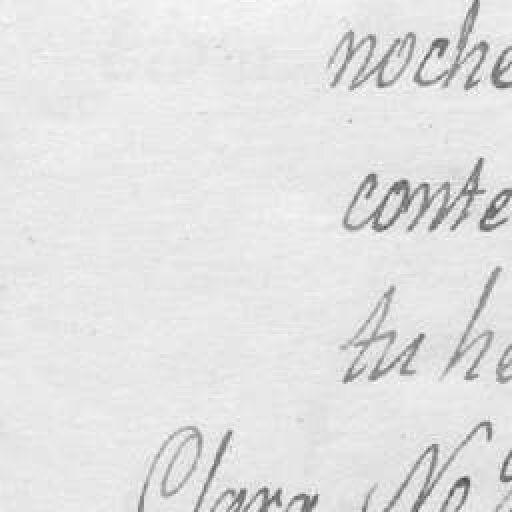 noche
conte
tu he
Clara No